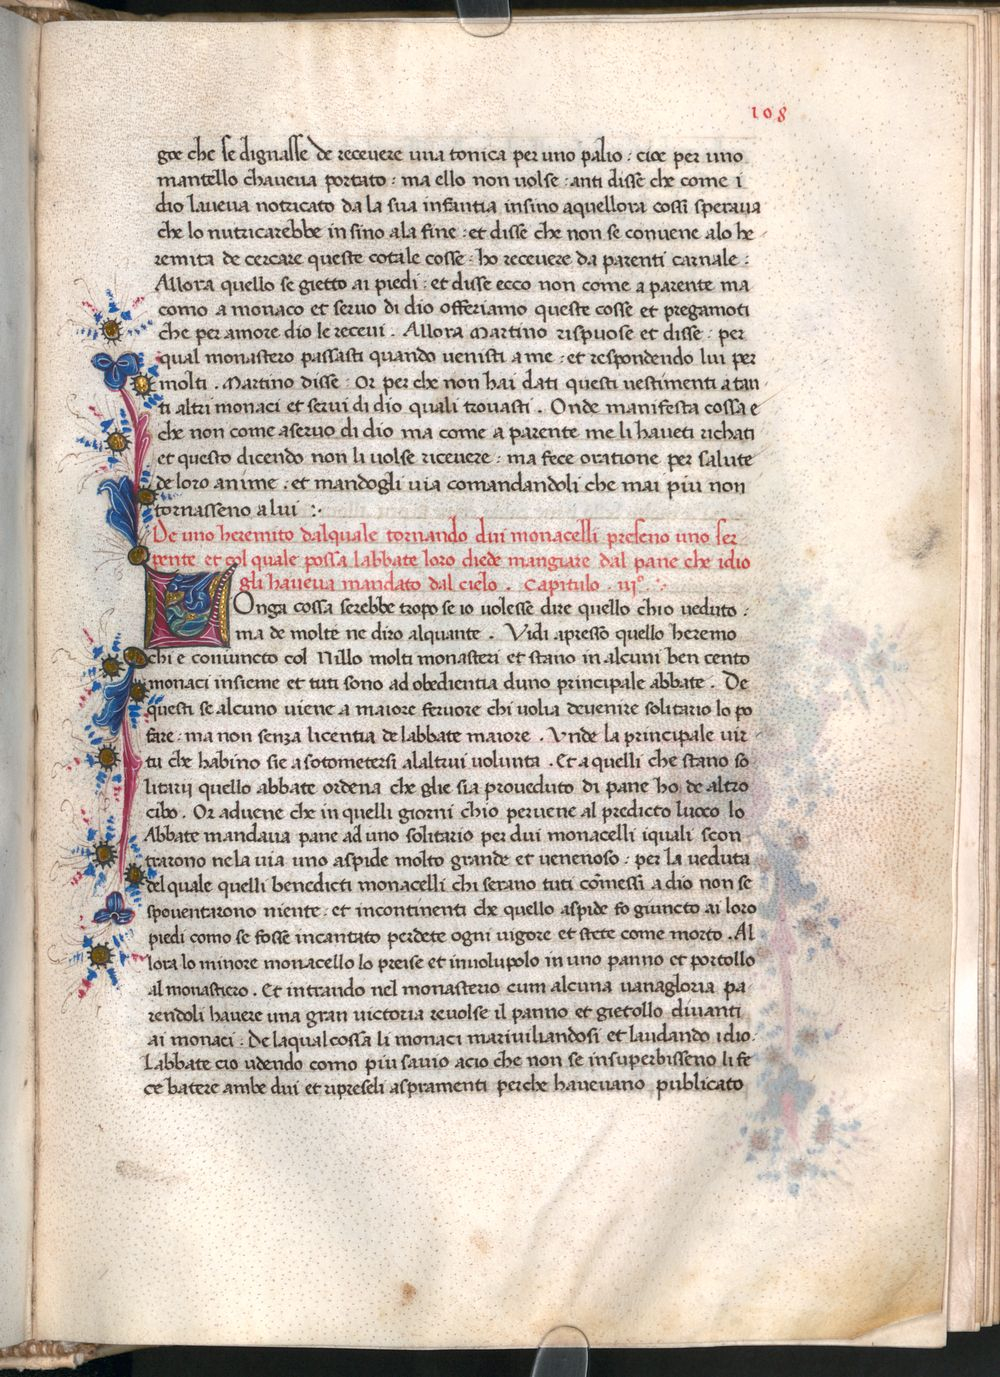 108
goe che se dignasse de recevere una tonica per uno palio : cioe per uno
mantello chaveva portato : ma ello non volse : anti disse che come i
dio laveva notricato da la sua infantia insino aquellora cossi sperava
che lo nutricarebbe in sino ala fine : et disse che non se convene alo he
remita de cercare queste cotale cosse : ho recevere da parenti carnale :
Allora quello se gietto ai piedi : et disse ecco non come a parente ma
como a monaco et servo di dio offeriamo queste cosse et pregamoti
che per amore dio le recevi . Allora Martino rispuose et disse : per
qual monastero passasti quando venisti a me : et respondendo lui per
molti . Martino disse : Or per che non hai dati questi vestimenti a tan
ti altri monaci et servi di dio quali trovasti . Onde manifesta cossa e
che non come a servo di dio ma come a parente me li haveti richati
et questo dicendo non li volse ricevere : ma fece oratione per salute
de loro anime : et mandogli via comandandoli che mai piu non
tornasseno a lui :·
De uno heremito dalquale tornando dui monacelli preseno uno ser
pente et col quale possa labbate loro chiede mangiare dal pane che idio
gli haveva mandato dal cielo . Capitulo . iijº :·
LOnga cossa serebbe tropo se io volesse dire quello chio veduto :
ma de molte ne diro alquante . Vidi apresso quello heremo
chi e coniuncto col Nillo molti monasteri et stano in alcuni ben cento
monaci insieme et tuti sono ad obedientia duno principale abbate . De
questi se alcuno viene a maiore fervore chi volia devenire solitario lo po
fare : ma non senza licentia de labbate maiore . Vnde la principale vir
tu che habino sie a sotometersi alaltrui volunta . Et a quelli che stano so
litarij quello abbate ordena che glie sia proveduto di pane ho de altro
cibo . Or advene che in quelli giorni chio pervene al predicto luoco lo
Abbate mandava pane ad uno solitario per dui monacelli iquali scon
trarono nela via uno aspide molto grande et venenoso : per la veduta
del quale quelli benedicti monacelli chi serano tuti cōmessi a dio non se
spoventarono niente : et incontinenti che quello aspide fo giuncto ai loro
piedi como se fosse incantato perdete ogni vigore et stete come morto . Al
lora lo minore monacello lo preise et involupolo in uno panno et portollo
al monastiero . Et intrando nel monasterio cum alcuna vanagloria pa
rendoli havere una gran victoria revolse il panno et gietollo divanti
ai monaci : De laqual cossa li monaci mariviliandosi et laudando idio .
Labbate cio vdendo como piu savio acio che non se insuperbisseno li fe
ce batere ambe dui et ripreseli aspramenti perche havevano publicato